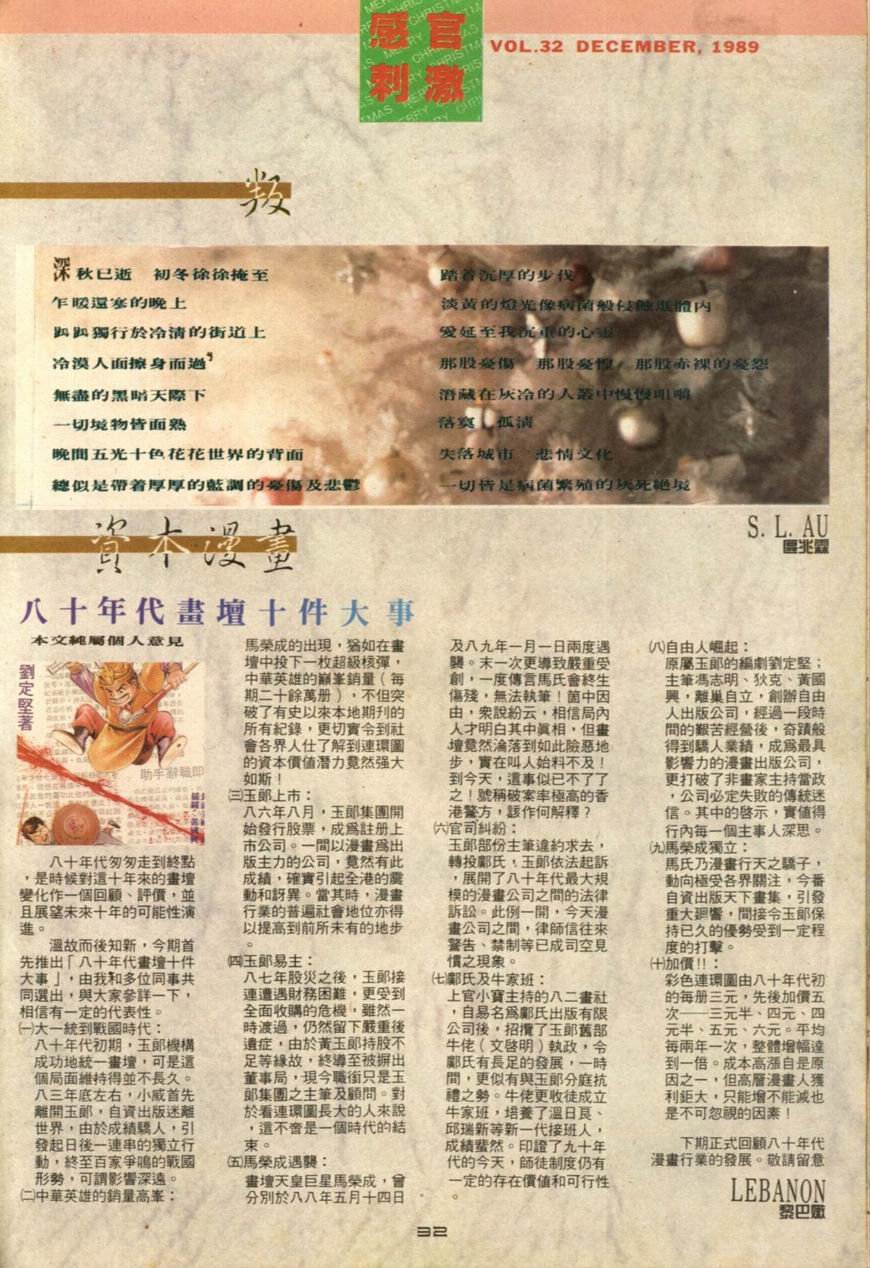 感官
刺激
VOL.32 DECEMBER, 1989
叛
深秋已逝 初冬徐徐掩至
乍暖還寒的晚上
踽踽獨行於冷清的街道上
冷漠人面擦身而過,
無盡的黑暗天際下
一切境物皆面熟
晚間五光十色花花世界的背面
總似是帶着厚厚的藍調的憂傷及悲鬱
踏着沉厚的步伐
淡黃的燈光像病菌般侵蝕進體內
蔓延至我沉重的心靈
那股憂傷 那股憂惶 那股赤裸的憂怨
潛藏在灰冷的人叢中慢慢咀嚼
落寞 孤清
失落城市 悲情文化
一切皆是病菌繁殖的灰死絕境
S. L. AU
區兆霖
資本漫畫
八十年代畫壇十件大事
本文純屬個人意見
劉定堅著
助手辭職即
八十年代匆匆走到終點
,是時候對這十年來的畫壇
變化作一個回顧、評價,並
且展望未來十年的可能性演
進。
溫故而後知新,今期首
先推出「八十年代畫壇十件
大事」,由我和多位同事共
同選出,與大家參詳一下,
相信有一定的代表性。
㈠大一統到戰國時代:
八十年代初期,玉郎機構
成功地統一畫壇,可是這
個局面維持得並不長久。
八三年底左右,小威首先
離開玉郎,自資出版迷離
世界,由於成績驕人,引
發起日後一連串的獨立行
動,終至百家爭鳴的戰國
形勢,可謂影響深遠。
㈡中華英雄的銷量高峯:
馬榮成的出現,猶如在畫
壇中投下一枚超級核彈,
中華英雄的巔峯銷量(每
期二十餘萬册),不但突
破了有史以來本地期刊的
所有紀錄,更切實令到社
會各界人仕了解到連環圖
的資本價值潛力竟然强大
如斯!
㈢玉郎上市:
八六年八月,玉郎集團開
始發行股票,成爲註册上
市公司。一間以漫畫爲出
版主力的公司,竟然有此
成績,確實引起全港的震
動和訝異。當其時,漫畫
行業的普遍社會地位亦得
以提高到前所未有的地步
。
㈣玉郎易主:
八七年股災之後,玉郎接
連遭遇財務困難,更受到
全面收購的危機,雖然一
時渡過,仍然留下嚴重後
遺症,由於黃玉郎持股不
足等緣故,終導至被摒出
董事局,現今職銜只是玉
郎集團之主筆及顧問。對
於看連環圖長大的人來說
,這不啻是一個時代的結
束。
㈤馬榮成遇襲:
畫壇天皇巨星馬榮成,曾
分別於八八年五月十四日
及八九年一月一日兩度遇
襲。末一次更導致嚴重受
創,一度傳言馬氏會終生
傷殘,無法執筆!箇中因
由,衆說紛云,相信局內
人才明白其中眞相,但畫
壇竟然淪落到如此險惡地
步,實在叫人始料不及!
到今天,這事似已不了了
之!號稱破案率極高的香
港警方,該作何解釋?
㈥官司糾紛:
玉郎部份主筆違約求去,
轉投鄺氏,玉郎依法起訴
,展開了八十年代最大規
模的漫畫公司之間的法律
訴訟。此例一開,今天漫
畫公司之間,律師信往來
警告、禁制等已成司空見
慣之現象。
㈦鄺氏及牛家班:
上官小寶主持的八二畫社
,自易名爲鄺氏出版有限
公司後,招攬了玉郎舊部
牛佬(文啓明)執政,令
鄺氏有長足的發展,一時
間,更似有與玉郎分庭抗
禮之勢。牛佬更收徒成立
牛家班,培養了溫日良、
邱瑞新等新一代接班人,
成績蜚然。印證了九十年
代的今天,師徒制度仍有
一定的存在價值和可行性
。
㈧自由人崛起:
原屬玉郎的編劇劉定堅;
主筆馮志明、狄克、黃國
興,離巢自立,創辦自由
人出版公司,經過一段時
間的艱苦經營後,奇蹟般
得到驕人業績,成爲最具
影響力的漫畫出版公司,
更打破了非畫家主持當政
,公司必定失敗的傳統迷
信。其中的啓示,實值得
行內每一個主事人深思。
㈨馬榮成獨立:
馬氏乃漫畫行天之驕子,
動向極受各界關注,今番
自資出版天下畫集,引發
重大廻響,間接令玉郎保
持已久的優勢受到一定程
度的打擊。
㈩加價!!:
彩色連環圖由八十年代初
的每册三元,先後加價五
次——三元半、四元、四
元半、五元、六元。平均
每兩年一次,整體增幅達
到一倍。成本高漲自是原
因之一,但高層漫畫人獲
利鉅大,只能增不能減也
是不可忽視的因素!
下期正式回顧八十年代
漫畫行業的發展。敬請留意
LEBANON
黎巴嫩
32